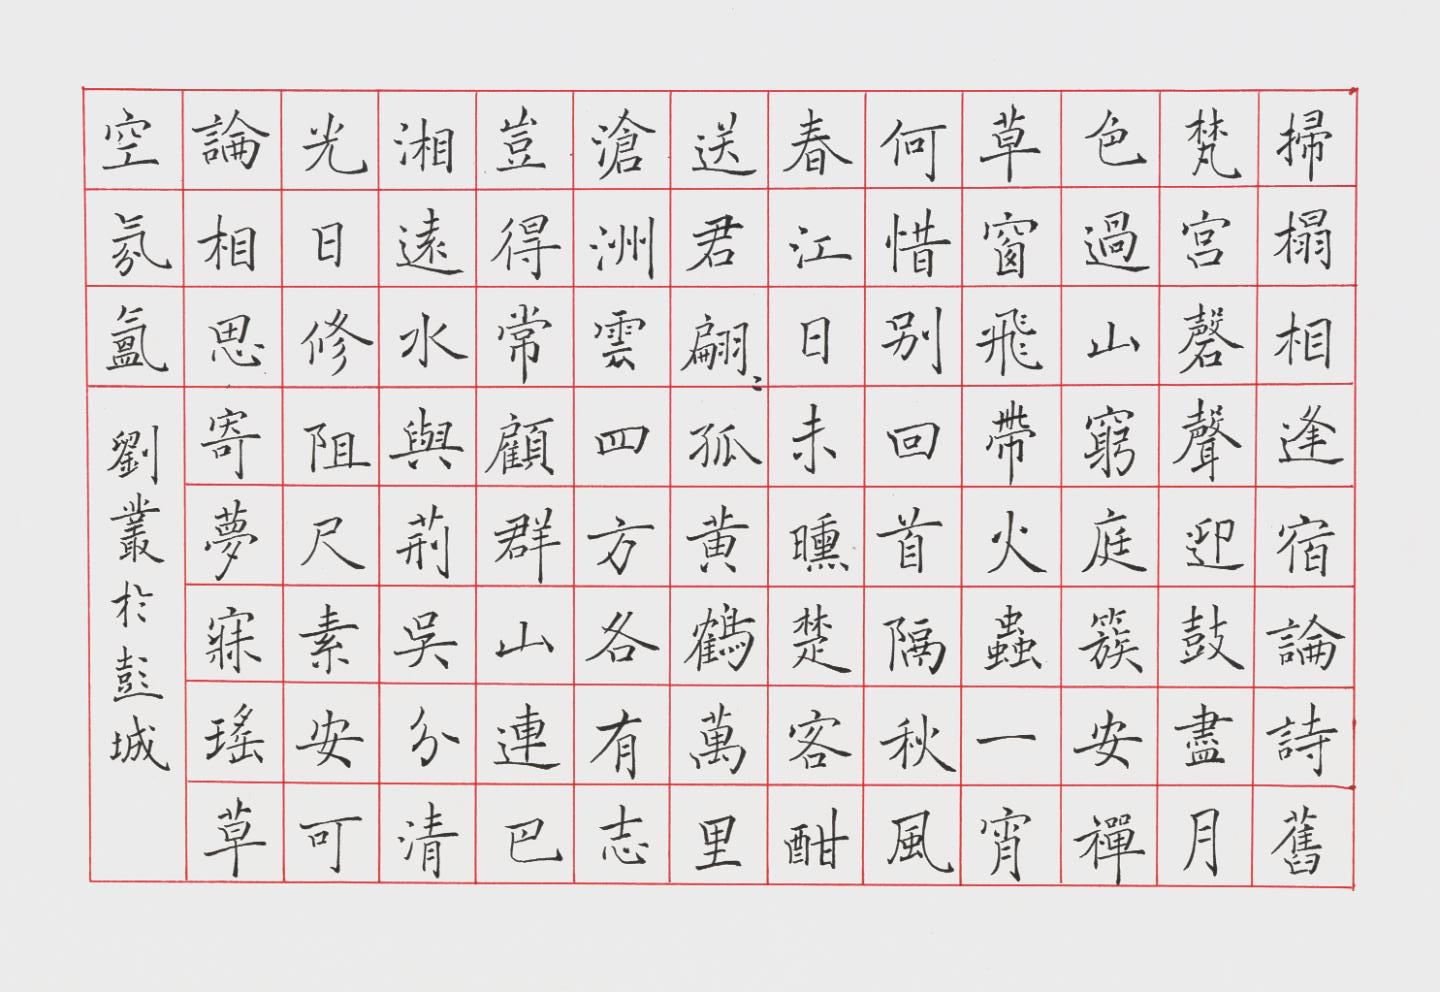 掃榻相逢宿論詩舊
梵宮磬聲迎鼓盡月
色過山窮庭簇安禪
草窗飛帶火蟲一宵
何惜别回首隔秋風
春江日未曛楚客酣
送君翩〻孤黄鶴萬里
滄洲雲四方各有志
豈得常顧群山連巴
湘遠水與荊吳分清
光日修阻尺素安可
論相思寄夢寐瑤草
空氛氳
劉叢於彭城